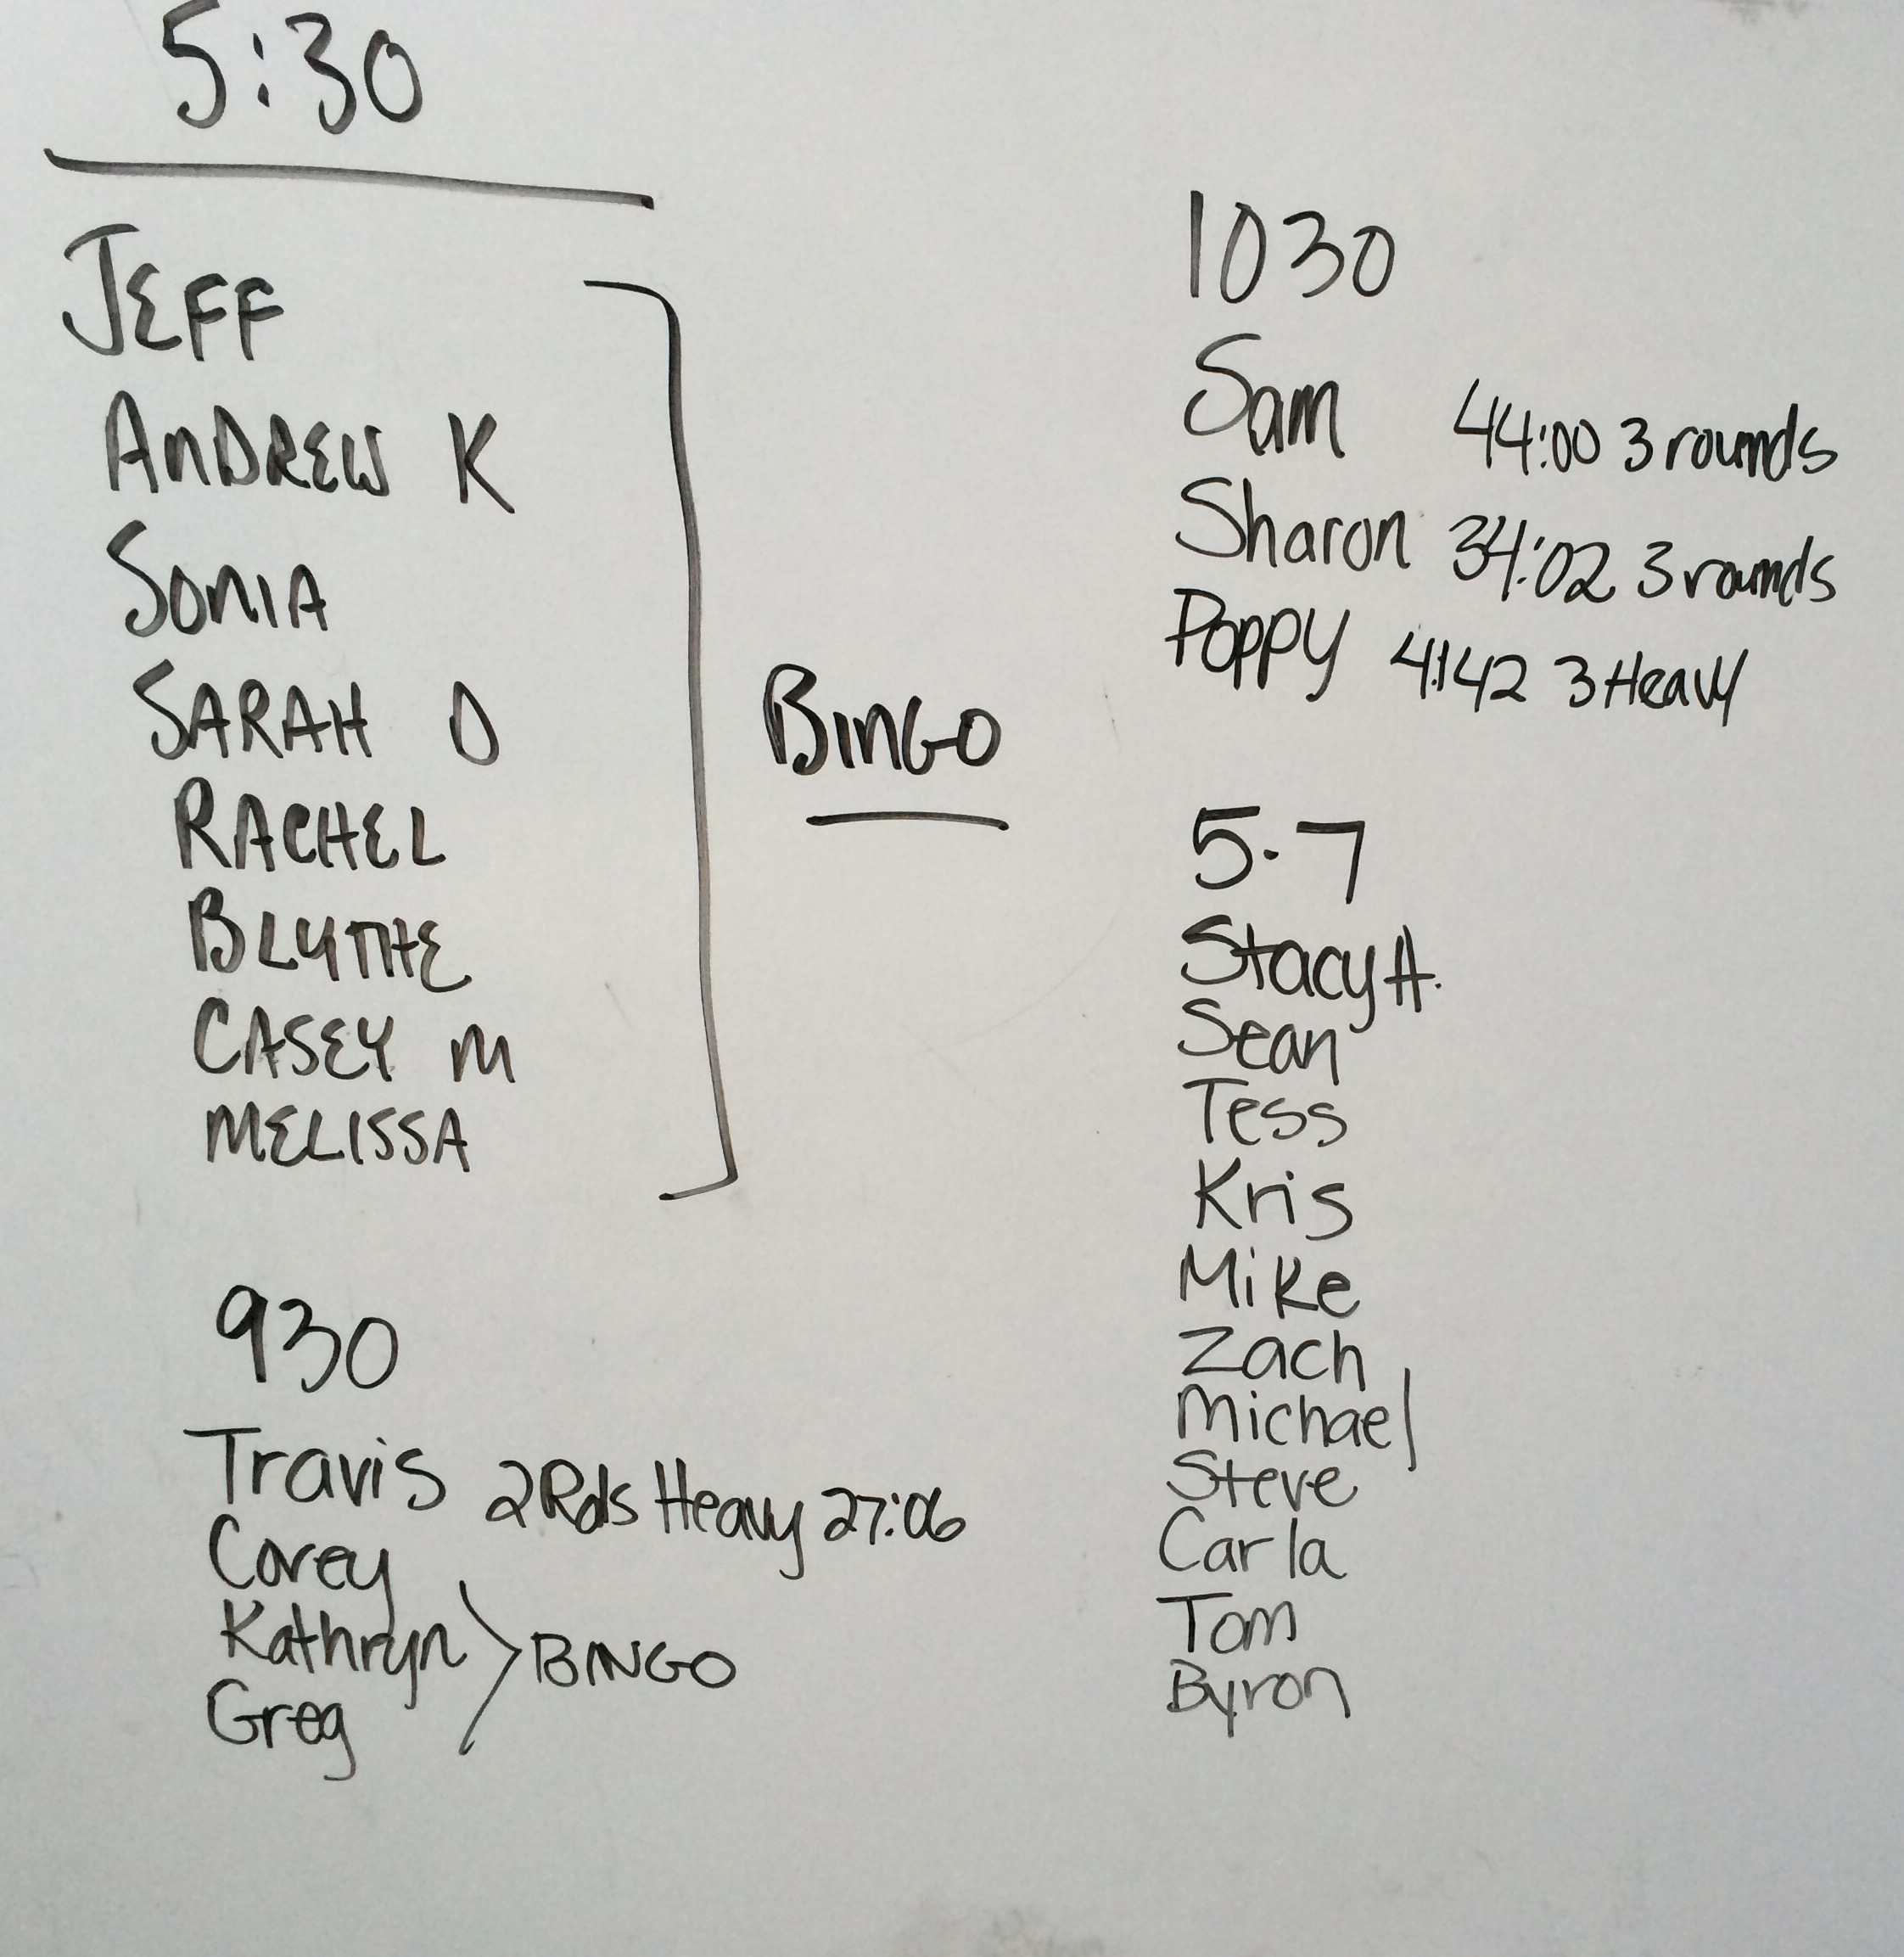 5:30
JEFF
ANDREW K
SONIA
SARAH O
RACHEL
BLYTHE
CASEY M
MELISSA
BINGO
930
Travis 2Rds Heavy 27:06
Corey
Kathryn
Greg
BINGO
1030
Sam 44:00 3 rounds
Sharon 34:02 3 rounds
Poppy 41:42 3 Heavy
5-7
Stacy H.
Sean
Tess
Kris
Mike
Zach
Michael
Steve
Carla
Tom
Byron